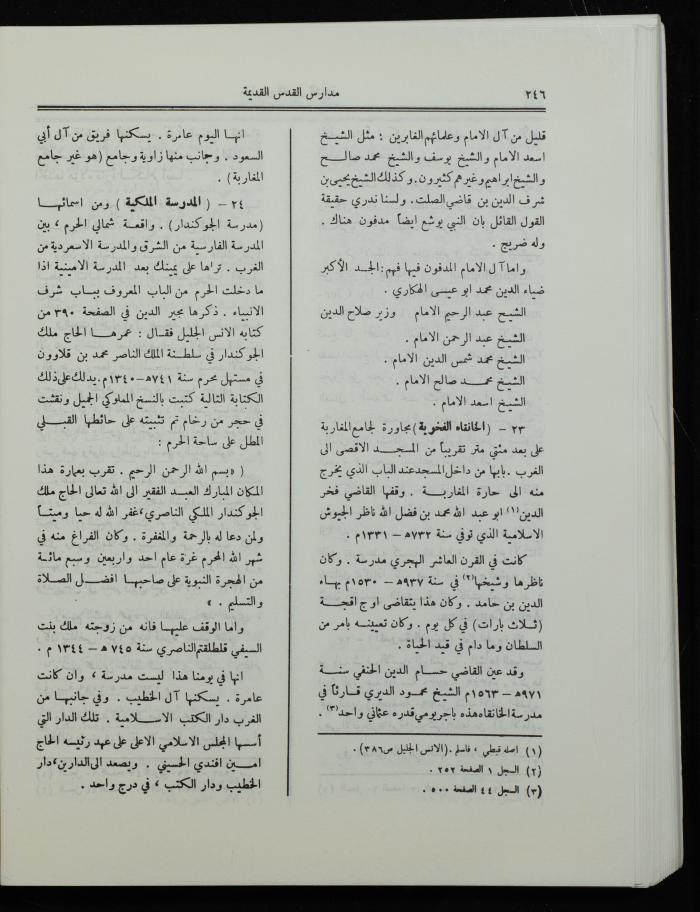 ٢٤٦
مدارس القدس القديمة
قليل من آل الامام وعلمائهم الغابرين : مثل الشيخ
اسعد الامام والشيخ يوسف والشيخ محمد صالح
والشيخ ابراهيم وغيرهم كثيرون . وكذلك الشيخ يحيى بن
شرف الدين بن قاضي الصلت . ولسنا ندري حقيقة
القول القائل بان النبي يوشع ايضاً مدفون هناك .
وله ضريح .
واما آل الامام المدفون فيها فهم : الجد الأكبر
ضياء الدين محمد ابو عيسى الهكاري .
الشيخ عبد الرحيم الامام وزير صلاح الدين
الشيخ عبد الرحمن الامام .
الشيخ محمد شمس الدين الامام .
الشيخ محمد صالح الامام .
الشيخ اسعد الامام .
٢٣ – ( الخانقاه الفخرية ) مجاورة لجامع المغاربة
على بعد مئتي متر تقريباً من المسجد الاقصى الى
الغرب . بابها من داخل المسجد عند الباب الذي يخرج
منه الى حارة المغاربة . وقفها القاضي فخر
الدين (١) ابو عبد الله محمد بن فضل الله ناظر الجيوش
الاسلامية الذي توفي سنة ٧٣٢ﻫ – ١٣٣١م .
كانت في القرن العاشر الهجري مدرسة . وكان
ناظرها وشيخها (٢) في سنة ٩٣٧ﻫ – ١٥٣٠م بهاء
الدين بن حامد . وكان هذا يتقاضى اوج اقجة
(ثلاث بارات) في كل يوم . وكان تعيينه بامر من
السلطان وما دام في قيد الحياة .
وقد عين القاضي حسام الدين الحنفي سنة
٩٧١ﻫ – ١٥٦٣م الشيخ محمود الديري قارئاً في
مدرسة الخانقاه هذه باجر يومي قدره عثماني واحد (٣) .
(١) اصله قبطي ، فاسلم . (الانس الجليل ص ٣٨٦) .
(٢) السجل ١ الصفحة ٢٥٢ .
(٣) السجل ٤٤ الصفحة ٥٠٠ .
انها اليوم عامرة . يسكنها فريق من آل أبي
السعود . وبجانب منها زاوية وجامع (هو غير جامع
المغاربة) .
٢٤ – ( المدرسة الملكية ) ومن اسمائها
(مدرسة الجوكندار) . واقعة شمالي الحرم ، بين
المدرسة الفارسية من الشرق والمدرسة الاسعردية من
الغرب . تراها على يمينك بعد المدرسة الامينية اذا
ما دخلت الحرم من الباب المعروف بباب شرف
الانبياء . ذكرها مجير الدين في الصفحة ٣٩٠ من
كتابه الانس الجليل فقال : عمرها الحاج ملك
الجوكندار في سلطنة الملك الناصر محمد بن قلاوون
في مستهل محرم سنة ٧٤١ﻫ – ١٣٤٠م . يدلك على ذلك
الكتابة التالية كتبت بالنسخ المملوكي الجميل ونقشت
في حجر من رخام تم تثبيته على حائطها القبلي
المطل على ساحة الحرم :
( « بسم الله الرحمن الرحيم . تقرب بعمارة هذا
المكان المبارك العبد الفقير الى الله تعالى الحاج ملك
الجوكندار الملكي الناصري ، غفر الله له حيا وميتاً
ولمن دعا له بالرحمة والمغفرة . وكان الفراغ منه في
شهر الله المحرم غرة عام احد واربعين وسبع مائة
من الهجرة النبوية على صاحبها افضل الصلاة
والتسليم . »
واما الوقف عليها فانه من زوجته ملك بنت
السيفي قلطلقتم الناصري سنة ٧٤٥ ﻫ – ١٣٤٤ م .
انها في يومنا هذا ليست مدرسة ، وان كانت
عامرة . يسكنها آل الخطيب . وفي جانبها من
الغرب دار الكتب الاسلامية . تلك الدار التي
أسسها المجلس الاسلامي الاعلى على عهد رئيسه الحاج
امين افندي الحسيني . ويصعد الى الدارين ، دار
الخطيب ودار الكتب ، في درج واحد .